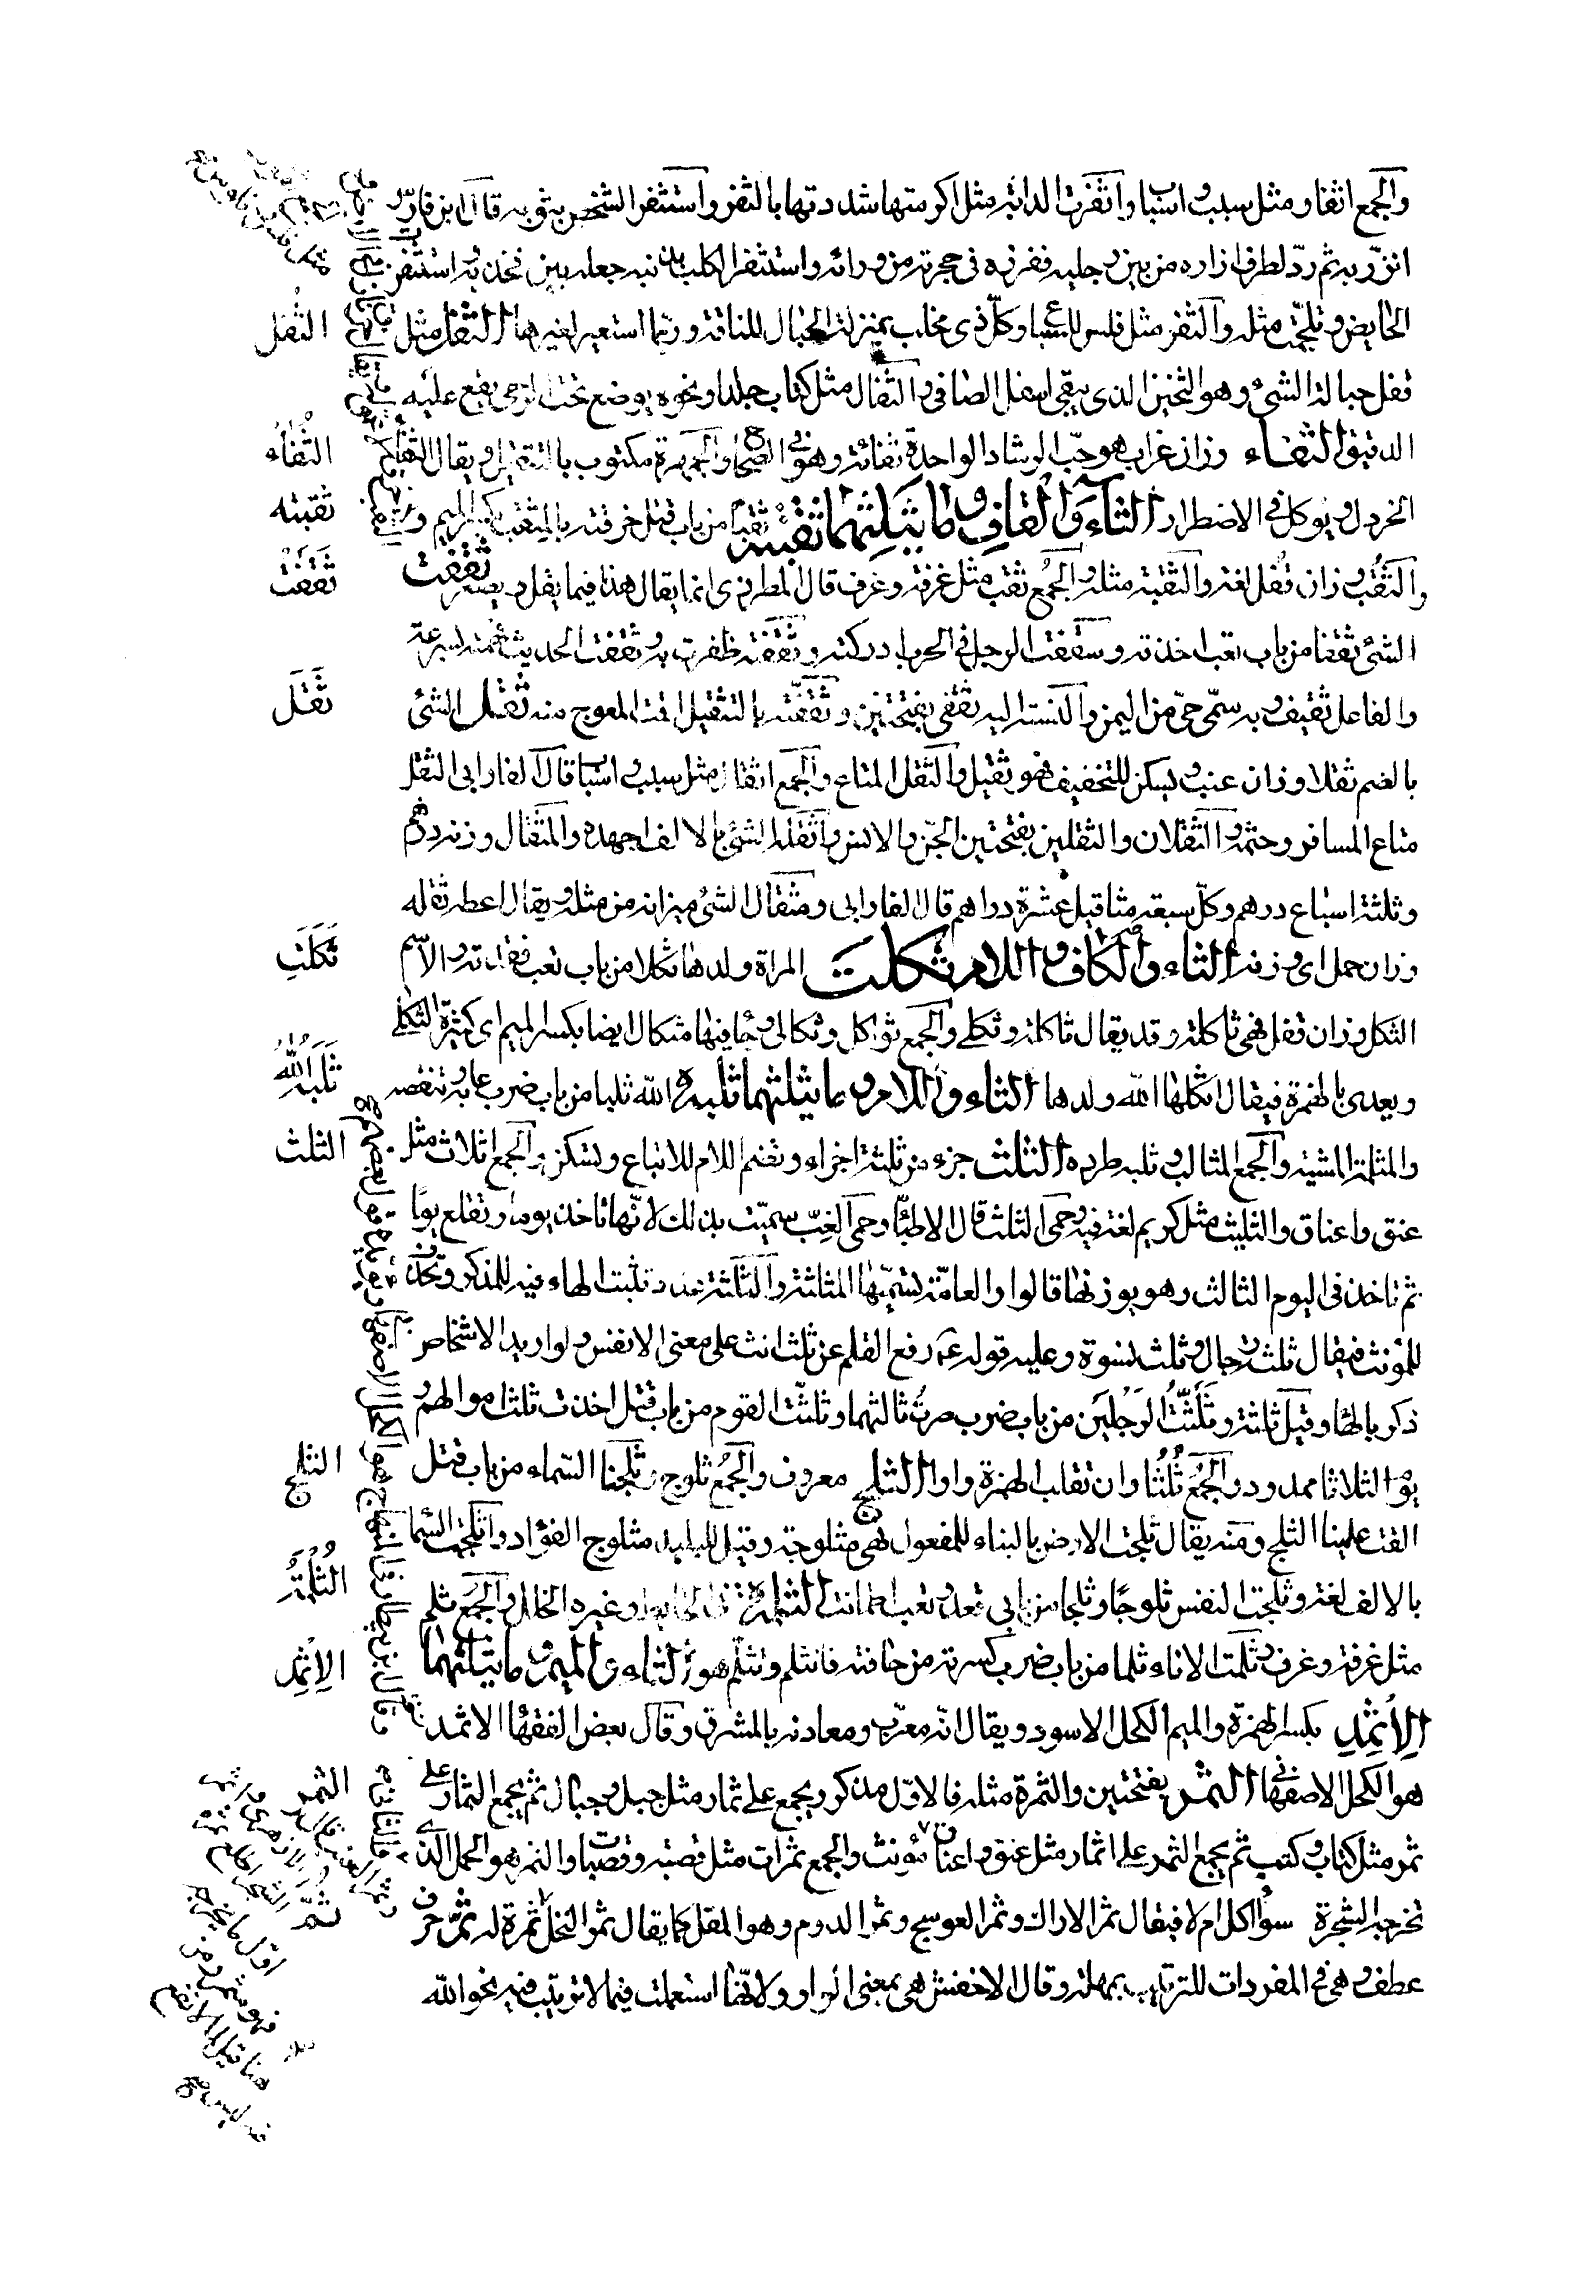 والجمع اثفار مثل سبب واسباب واثفرت الدابة مثل اكرمتها شددتها بالثفر واستثفر الشخص بثوبه قال ابن فارس
اتزر به ثم رد طرف ازاره من بين رجليه فغرزه فى حجزته من ورائه واستثفر الكلب بذنبه جعله بين فخذيه واستثفرت
الحايض وتلجمت مثله والثفر مثل فلس للسباع وكل ذى مخلب بمنزلة الحيا للناقة وربما استعير لغيرها الثفل مثل
قفل حثالة الشئ وهو الثخين الذى يبقى اسفل الصافى والثفال مثل كتاب جلد او نحوه يوضع تحت الرحى يقع عليه
الدقيق الثفاء وزان غراب هو حب الرشاد الواحدة ثفاءة وهو فى الصحاح والجمهرة مكتوب بالتثقيل ويقال الثفاء
الخردل ويوكل فى الاضطرار الثاء والقاف وما يثلثهما ثقبته ثقبا من باب قتل خرقته بالمثقب بكسر الميم
والثقب وزان قفل لغة والثقبة مثله والجمع ثقب مثل غرفة وغرف قال المطرزى انما يقال هذا فيما يقل ويصغر ثقفت
الشئ ثقفا من باب تعب اخذته وثقفت الرجل فى الحرب ادركته وثقفته ظفرت به وثقفت الحديث فهمته بسرعة
والفاعل ثقيف وبه سمى حى من اليمن والنسبة اليه ثقفى بفتحتين وثقفته بالتثقيل اقمت المعوج منه ثقل الشئ
بالضم ثقلا وزان عنب ويسكن للتخفيف فهو ثقيل والثقل المتاع والجمع اثقال مثل سبب واسباب قال الفارابى الثقل
متاع المسافر وحشمه والثقلان والثقلين بفتحتين الجن والانس واثقله الشئ بالالف اجهده والمثقال وزنه درهم
وثلثة اسباع درهم وكل سبعة مثاقيل عشرة دراهم قال الفارابى ومثقال الشئ ميزانه من مثله ويقال اعطه ثقله
وزان حمل اى وزنه الثاء والكاف واللام ثكلت المراة ولدها ثكلا من باب تعب فقدته والاسم
الثكل وزان قفل فهى ثاكلة وقد يقال ثاكلة وثكلى والجمع ثواكل وثكالى وجا فيها مثكال ايضا بكسر الميم اى كثيرة الثكل
ويعدى بالهمزة فيقال اثكلها الله ولدها الثاء واللام وما يثلثهما ثلبه الله ثلبا من باب ضرب عابه وتنقصه
والمثلبة المسبة والجمع المثالب وثلبه طرده الثلث جزء من ثلثة اجزاء وتضم اللام للاتباع وتسكن والجمع اثلاث مثل
عنق واعناق والثليث مثل كريم لغة فيه وحمى الثلث قال الاطبا وحمى الغب سميت بذلك لانها تاخذ يوما وتقلع يوما
ثم تاخذ فى اليوم الثالث وهو بوزنها قالوا والعامة تسميها المثلثة والثلثة عدد تثبت الهاء فيه للمذكر وتحذف
للمونث فيقال ثلثة رجال وثلث نسوة وعليه قوله عم رفع القلم عن ثلث انث على معنى الانفس ولو اريد الاشخاص
ذكر بالها وقيل ثلثة وثلثت الرجلين من باب ضرب صرت ثالثهما وثلثت القوم من باب قتل اخذت ثلث اموالهم و
يوم الثلاثا ممدود والجمع ثلثا وان تقلب الهمزة واوا الثلج معروف والجمع ثلوج وثلجتنا السماء من باب قتل
القت علينا الثلج ومنه يقال ثلجت الارض بالبناء للمفعول فهى مثلوجة وقيل للبليد مثلوج الفؤاد واثلجت السما
بالالف لغة وثلجت النفس ثلوجا وثلجا من بابى قعد وتعب اطمانت الثلمة فى الحايط وغيره الخلل والجمع ثلم
مثل غرفة وغرف وثلمت الاناء ثلما من باب ضرب كسرته من حافته فانثلم وتثلم هو الثاء والميم وما يثلثهما
الاثمد بكسر الهمزة والميم الكحل الاسود ويقال انه معرب ومعادنه بالمشرق وقال بعض الفقها الاثمد
هو الكحل الاصفهانى الثمر بفتحتين والثمرة مثله فالاول مذكر ويجمع على ثمار مثل جبل وجبال ثم يجمع الثمار على
ثمر مثل كتاب وكتب ثم يجمع الثمر على اثمار مثل عنق واعناق مؤنث والجمع ثمرات مثل قصبة وقصبات والثمر هو الحمل الذى
تخرجه الشجرة سوا اكل ام لا فيقال ثمر الاراك وثمر العوسج وثمر الدوم وهو المقل كما يقال ثمر النخل ثمرة له ثم حرف
عطف وهى فى المفردات للترتيب بمهلة وقال الاخفش هى بمعنى الواو ولانها استعملت فيما لا ترتيب فيه نحو الله
الثفل
الثفاء
ثقبته
ثقفت
ثقل
ثكلت
ثلبه الله
الثلث
الثلج
الثلمة
الاثمد
الثمر
ثم